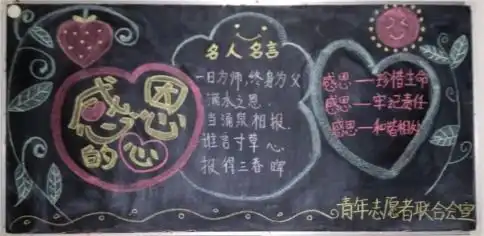 感恩
的心
名人名言
一日为师,终身为父
滴水之恩,
当涌泉相报.
谁言寸草心
报得三春晖
感恩——珍惜生命
感恩——牢记责任
感恩——和谐相处
青年志愿者联合会宣